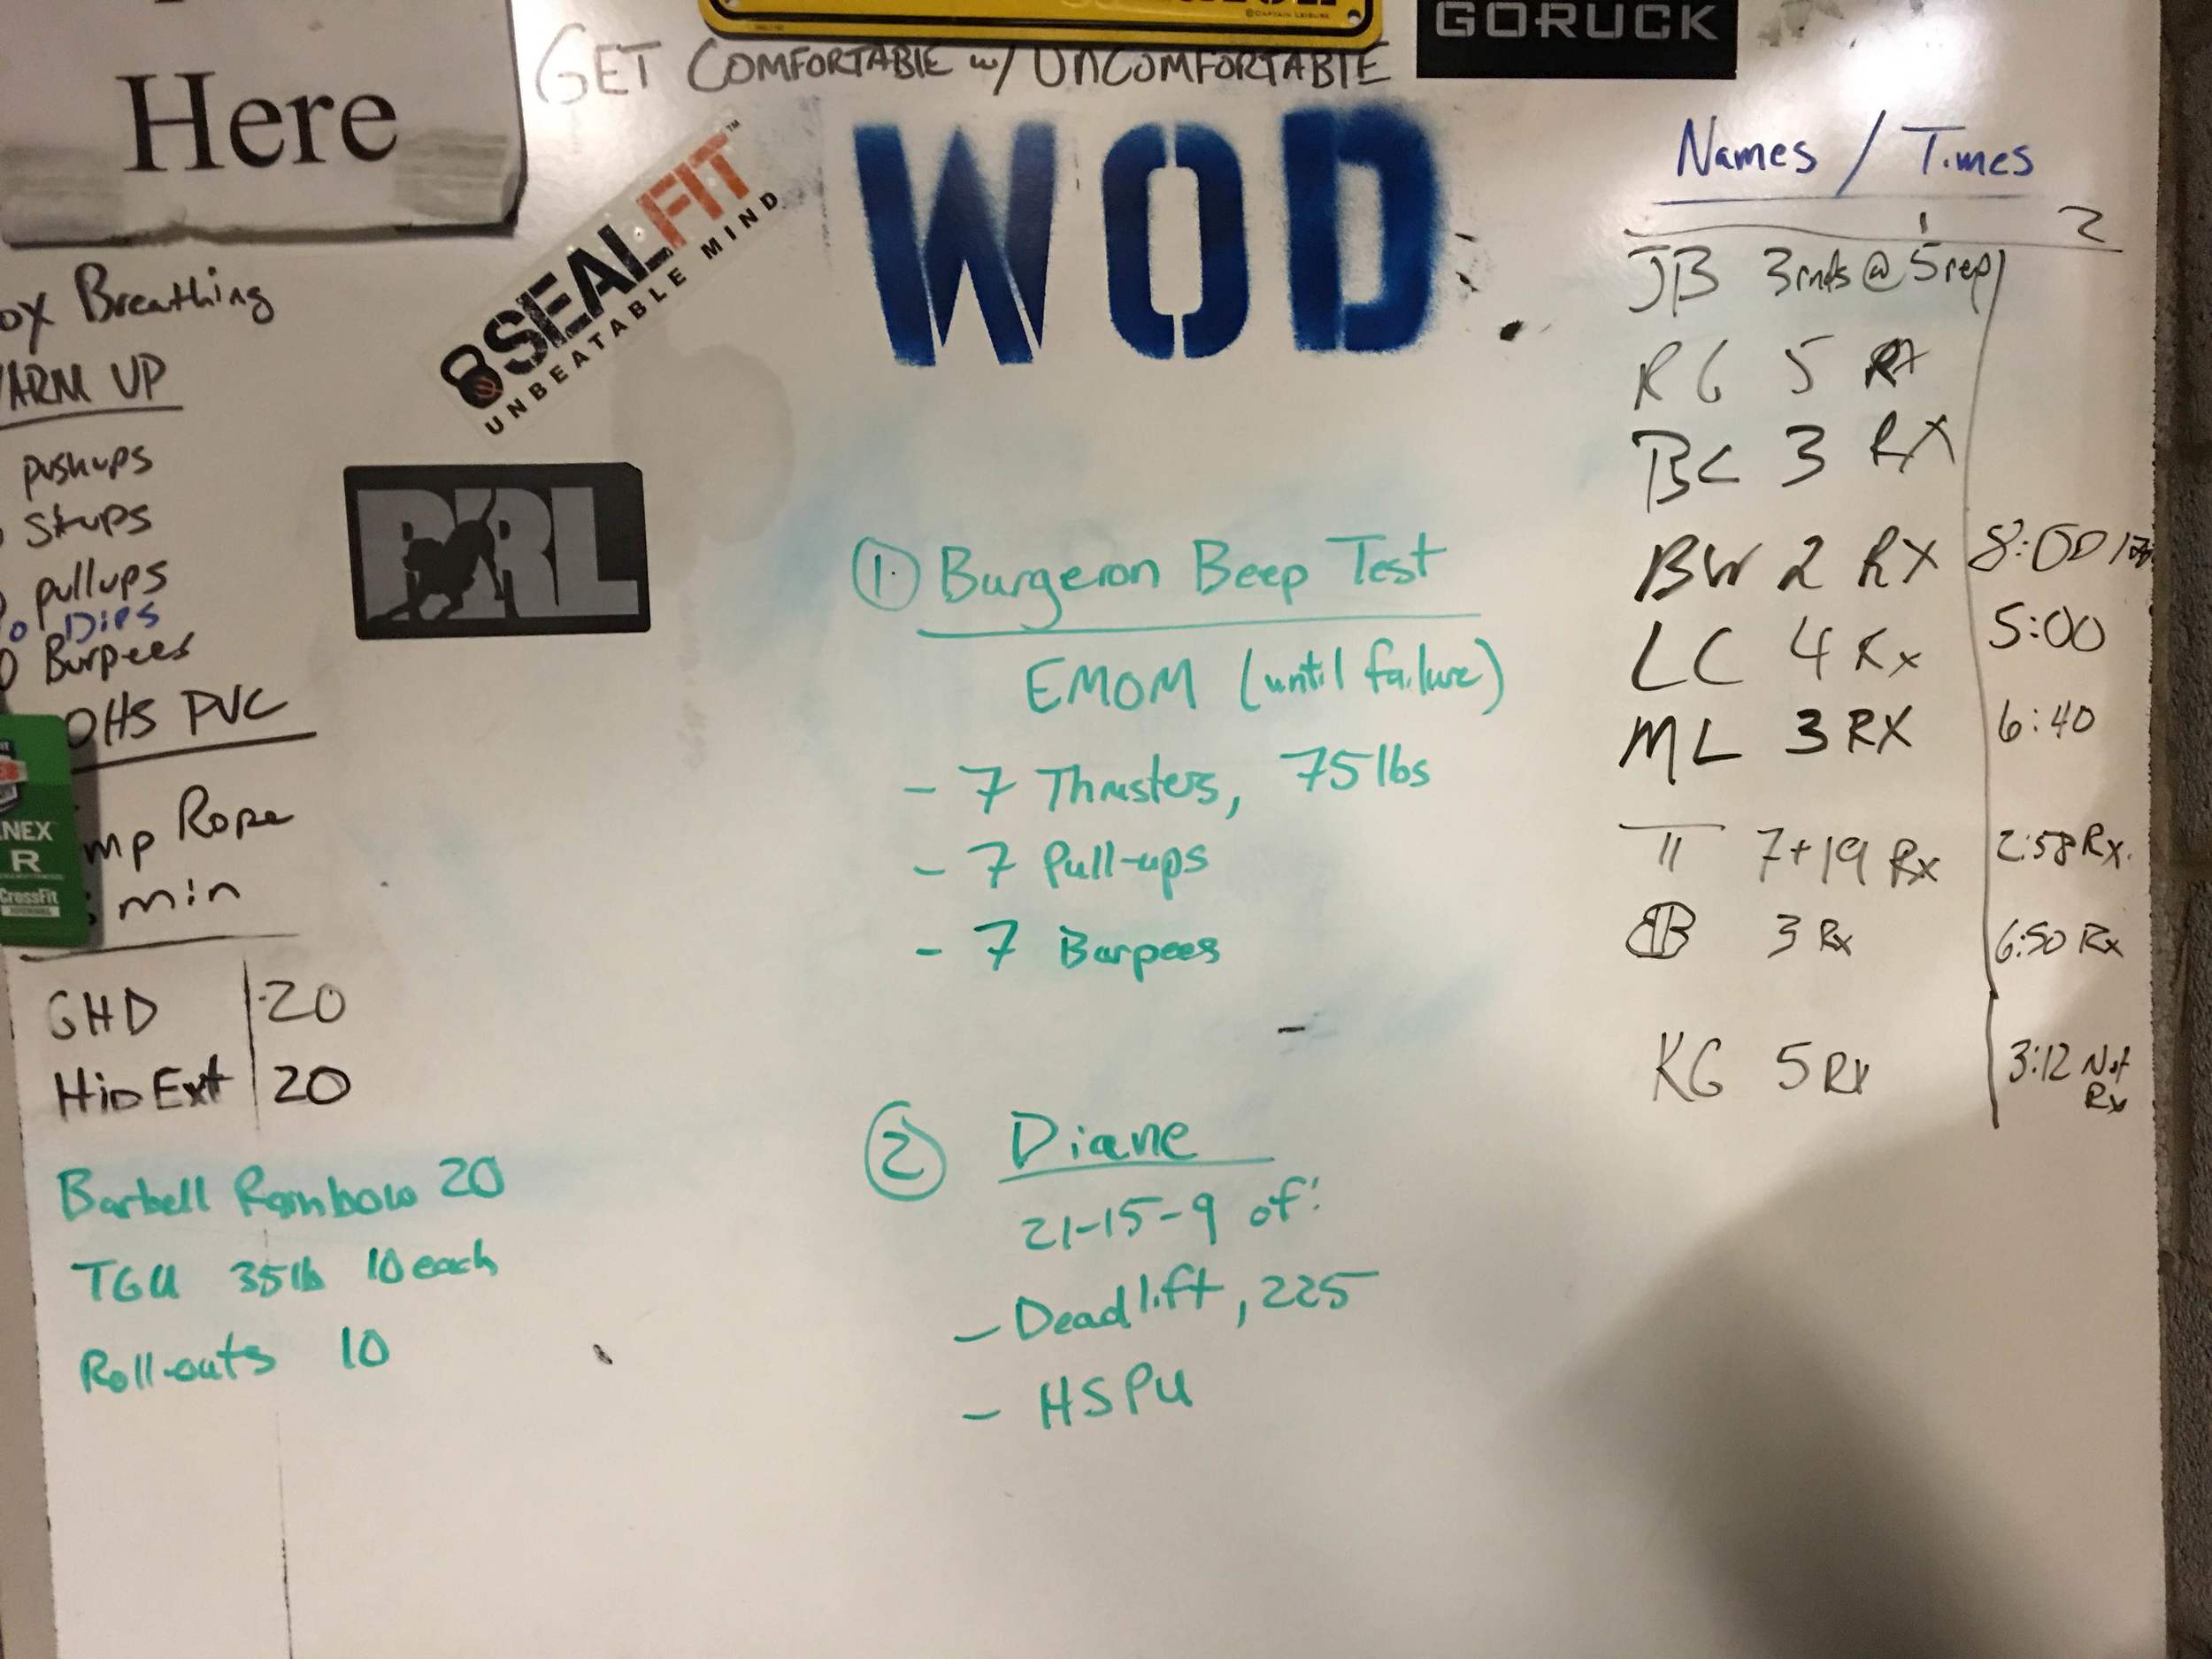 Here
GET COMFORTABLE w/ UNCOMFORTABLE
GORUCK
©CAPTAIN LEISURE
SEALFIT™
UNBEATABLE MIND
WOD
ox Breathing
ARM UP
pushups
situps
pullups
Dips
Burpees
OHS PVC
mp Rope
min
NEX
R
CrossFit
GHD 20
Hip Ext 20
Barbell Rainbow 20
TGU 35lb 10 each
Roll-outs 10
① Burgeron Beep Test
EMOM (until failure)
- 7 Thrusters, 75 lbs
- 7 Pull-ups
- 7 Burpees
② Diane
21-15-9 of:
- Deadlift, 225
- HSPU
Names / Times
1 2
JB 3rnds @ 5rep
RG 5 RX
BC 3 RX
BW 2 RX 8:00
LC 4 Rx 5:00
ML 3 RX 6:40
TT 7+19 Rx 2:58 Rx.
BB 3 Rx 6:50 Rx
KG 5 Rx 3:12 Not
Rx